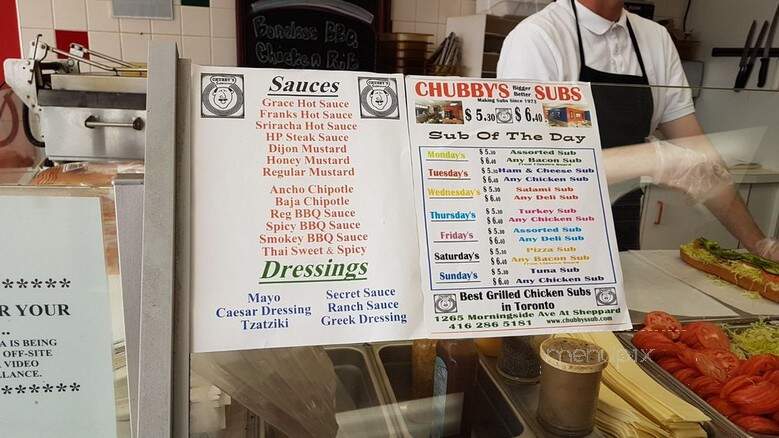 Boneless BBQ
Chicken Rib
Sauces
Grace Hot Sauce
Franks Hot Sauce
Sriracha Hot Sauce
HP Steak Sauce
Dijon Mustard
Honey Mustard
Regular Mustard
Ancho Chipotle
Baja Chipotle
Reg BBQ Sauce
Spicy BBQ Sauce
Smokey BBQ Sauce
Thai Sweet & Spicy
Dressings
Mayo
Caesar Dressing
Tzatziki
Secret Sauce
Ranch Sauce
Greek Dressing
CHUBBY'S Bigger Better SUBS
Making Subs Since 1973
$ 5.30 $ 6.40
Sub Of The Day
Monday's $ 5.30 Assorted Sub
$ 6.40 Any Bacon Sub
Tuesday's $ 5.30 Ham & Cheese Sub
$ 6.40 Any Chicken Sub
Wednesday's $ 5.30 Salami Sub
$ 6.40 Any Deli Sub
Thursday's $ 5.30 Turkey Sub
$ 6.40 Any Chicken Sub
Friday's $ 5.30 Assorted Sub
$ 6.40 Any Deli Sub
Saturday's $ 5.30 Pizza Sub
$ 6.40 Any Bacon Sub
Sunday's $ 5.30 Tuna Sub
$ 6.40 Any Chicken Sub
Best Grilled Chicken Subs
in Toronto
1265 Morningside Ave At Sheppard
416 286 5181 www.chubbyssub.com
*****
R YOUR
..
A IS BEING
OFF-SITE
VIDEO
LLANCE.
*****
menupix